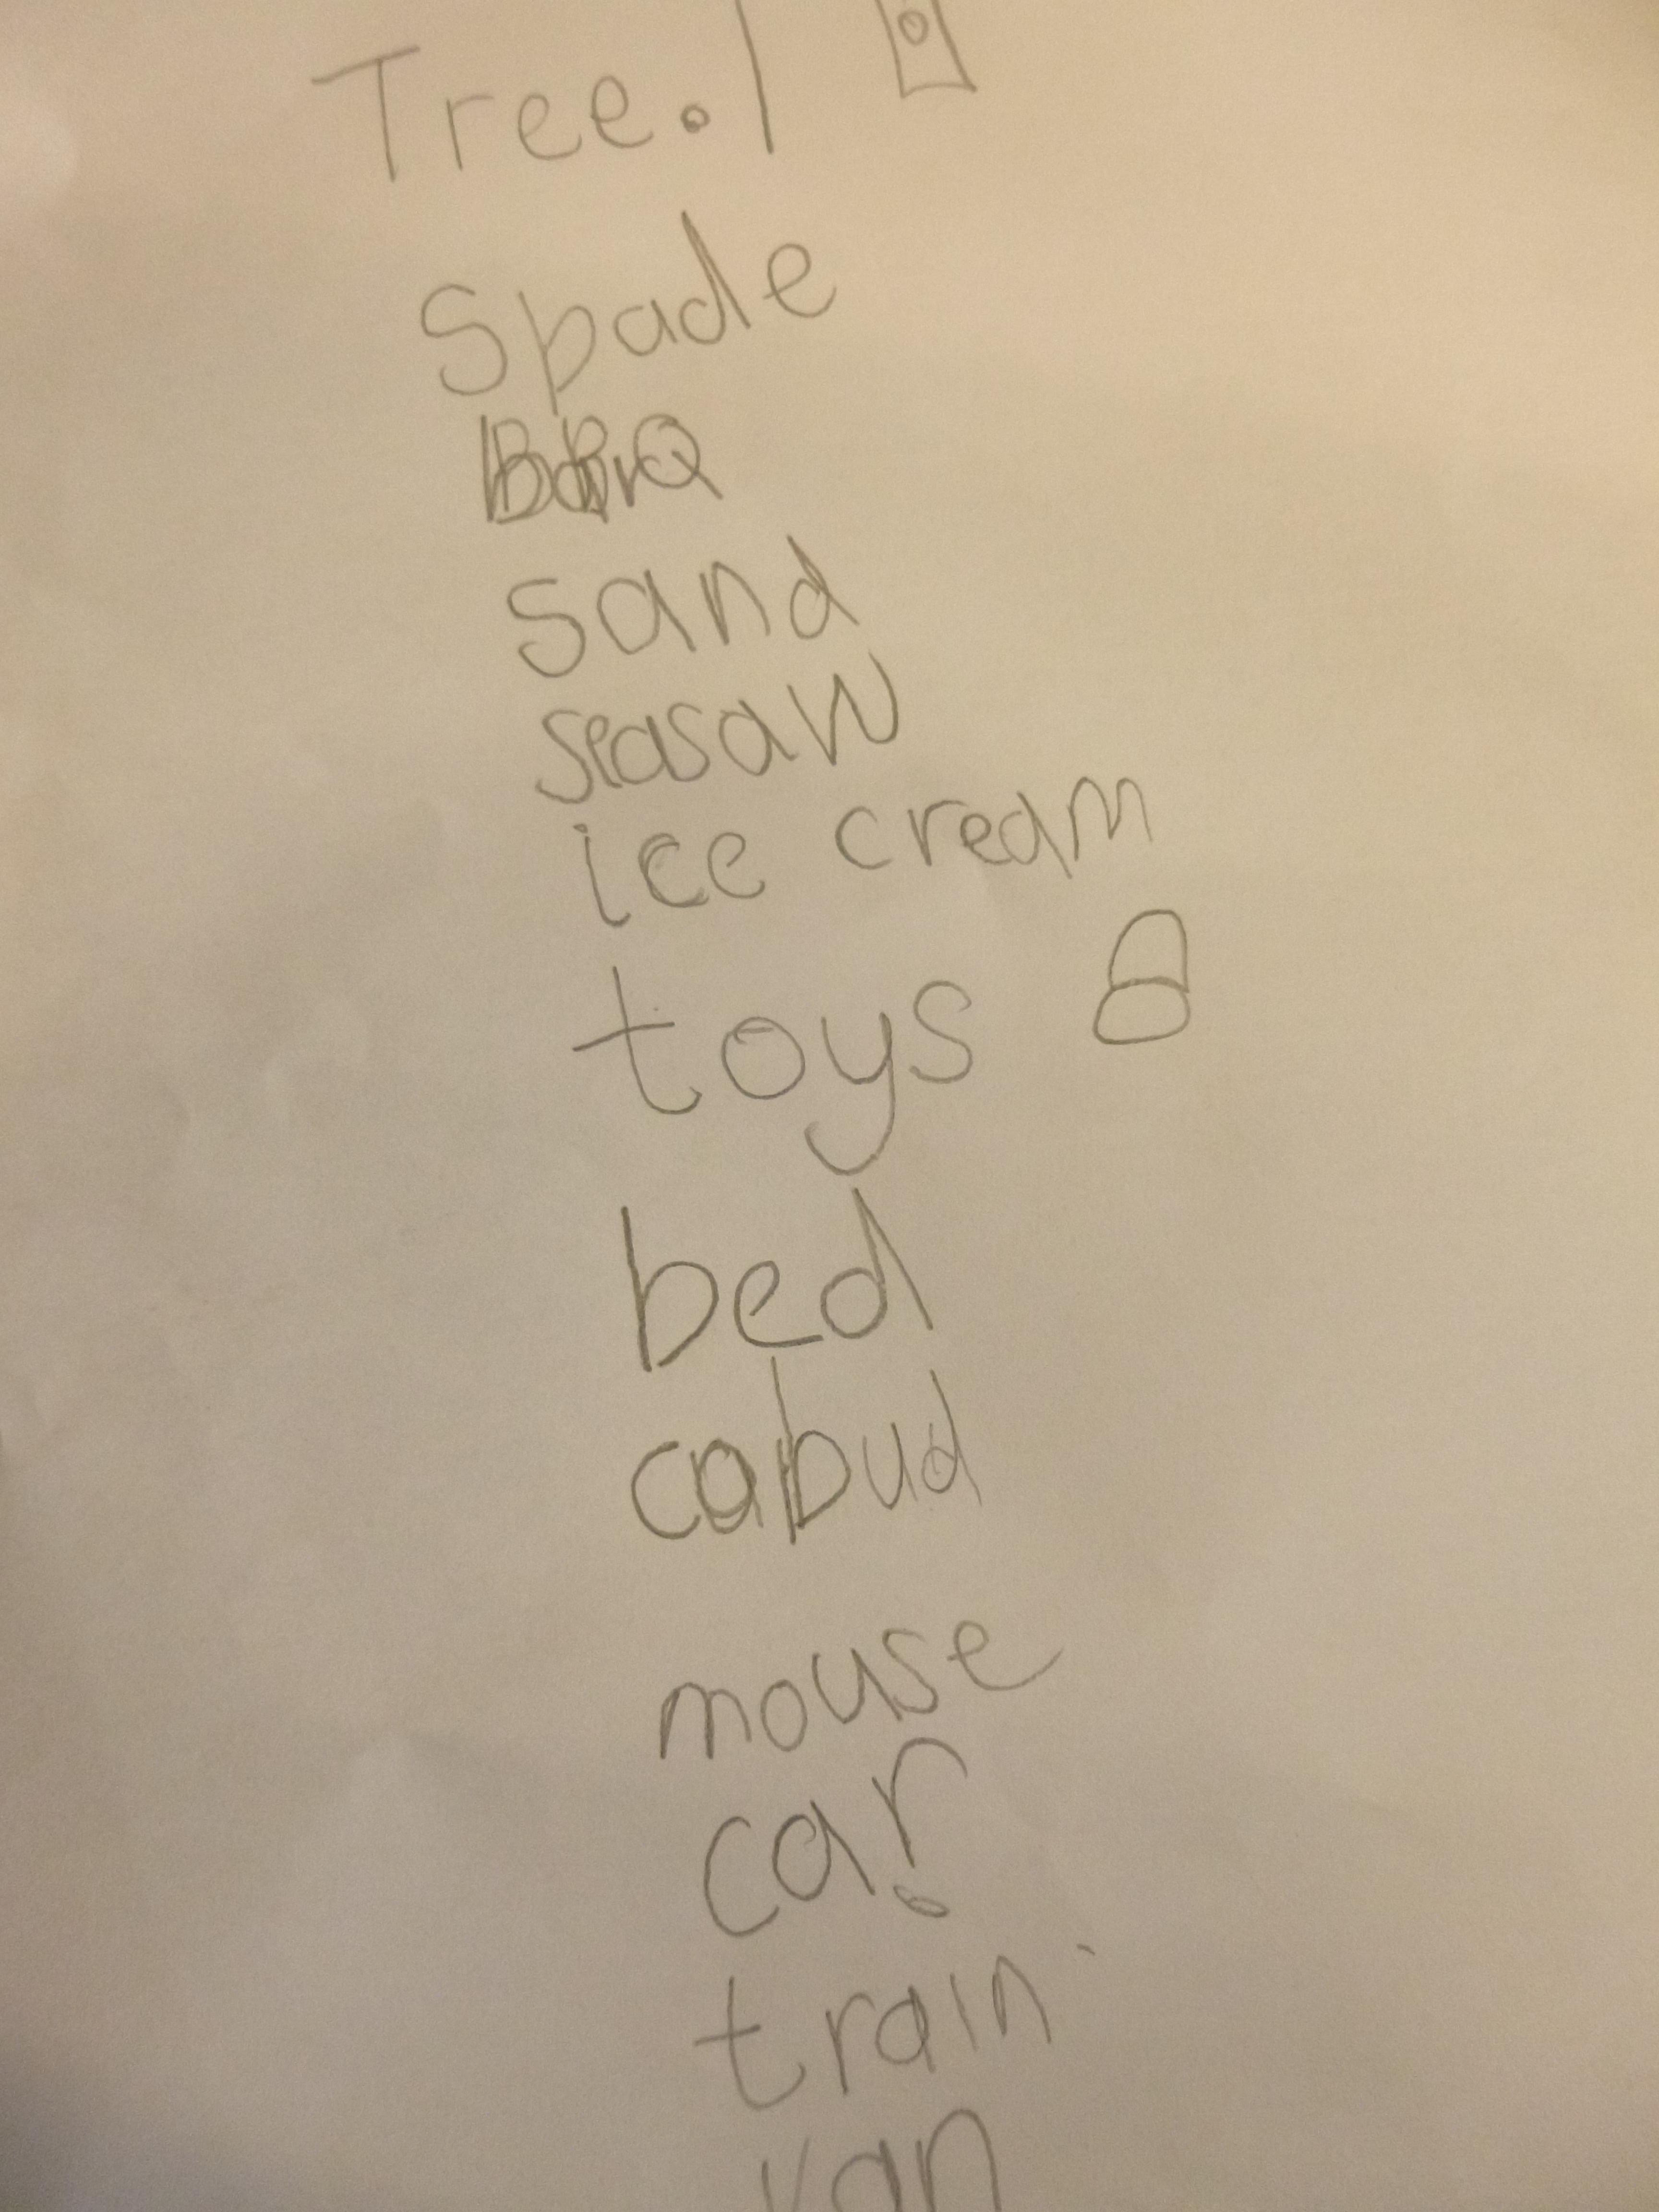 Tree.
Spade
sand
seasaw
ice cream
toys
bed
cabud
mouse
car
train
van